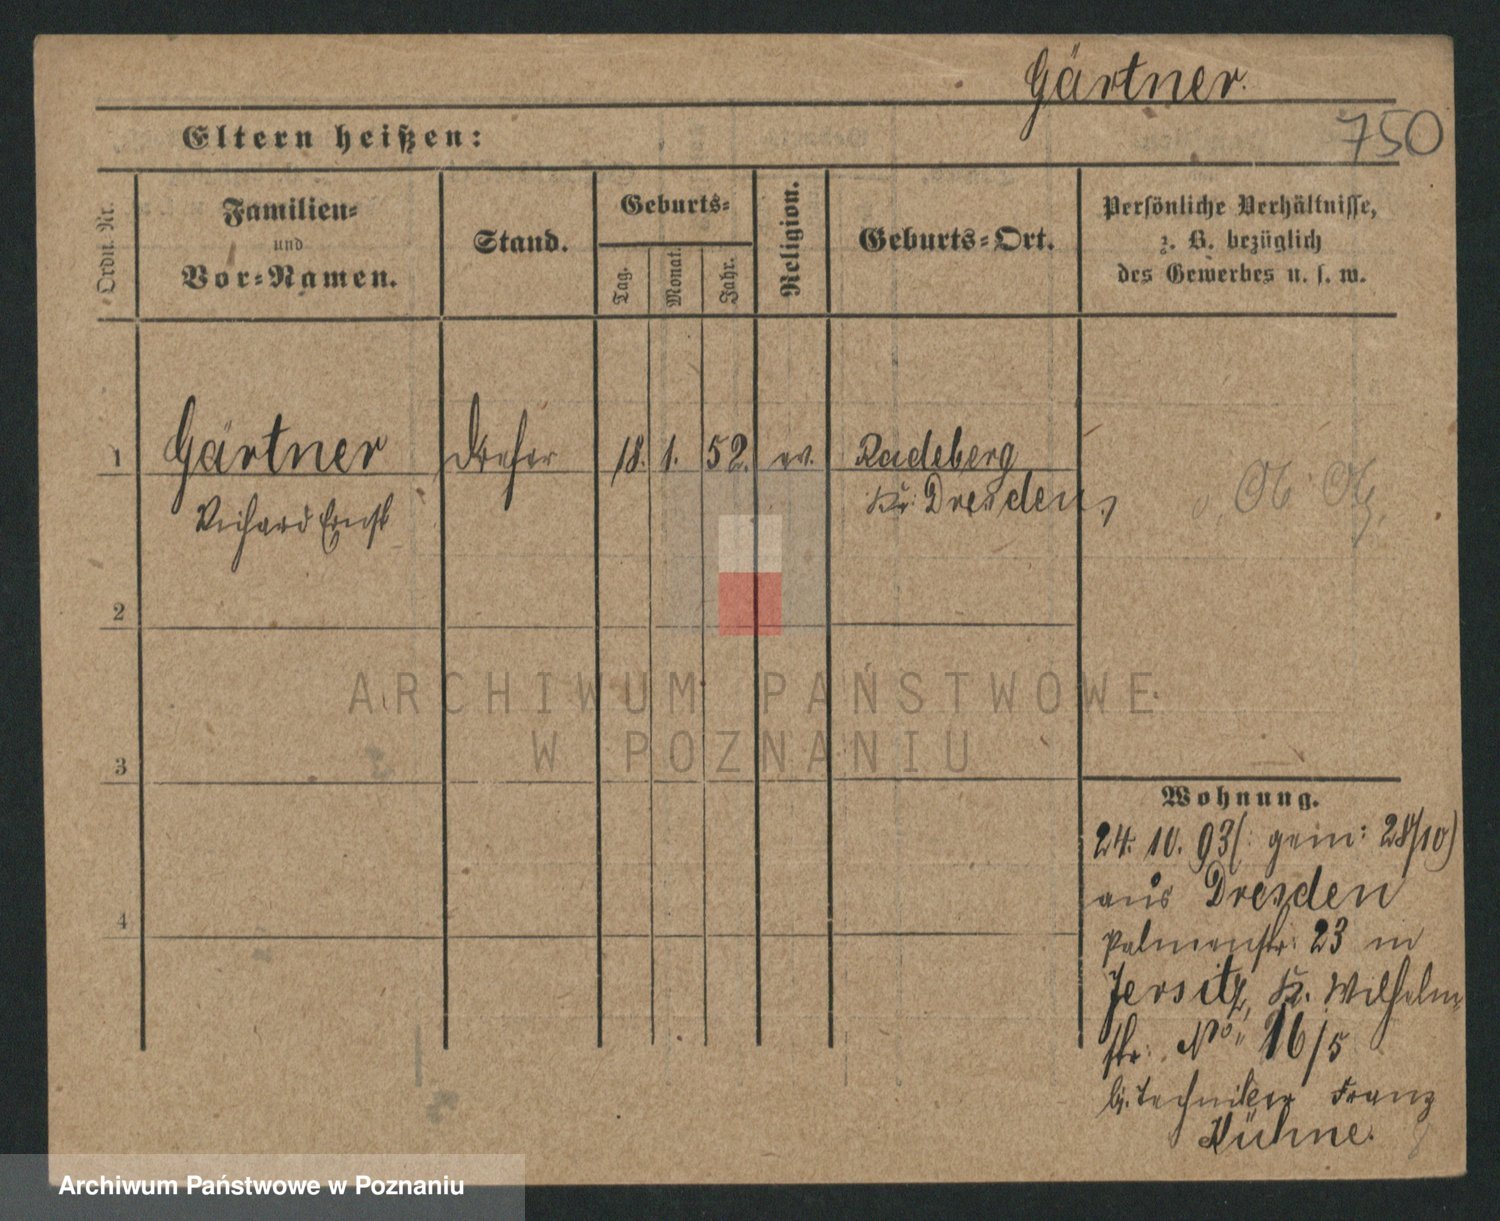 Gärtner.
750
Eltern heißen:
Ordn. Nr.
Familien=
und
Vor=Namen.
Stand.
Geburts=
Tag.
Monat.
Jahr.
Religion.
Geburts=Ort.
Persönliche Verhältnisse,
z. B. bezüglich
des Gewerbes u. s. w.
1 Gärtner Dreher 18. 1. 52. ev. Radeberg
Richard Ernst Kr: Dresden,
2
3
4
ARCHIWUM PAŃSTWOWE
W POZNANIU
Wohnung.
24. 10. 93(: gem: 28/10)
aus Dresden
Palmenstr: 23 in
Jersitz, Kr. Wilhelm
str: No: 16/5
b. Techniker Franz
Kühne.
Archiwum Państwowe w Poznaniu